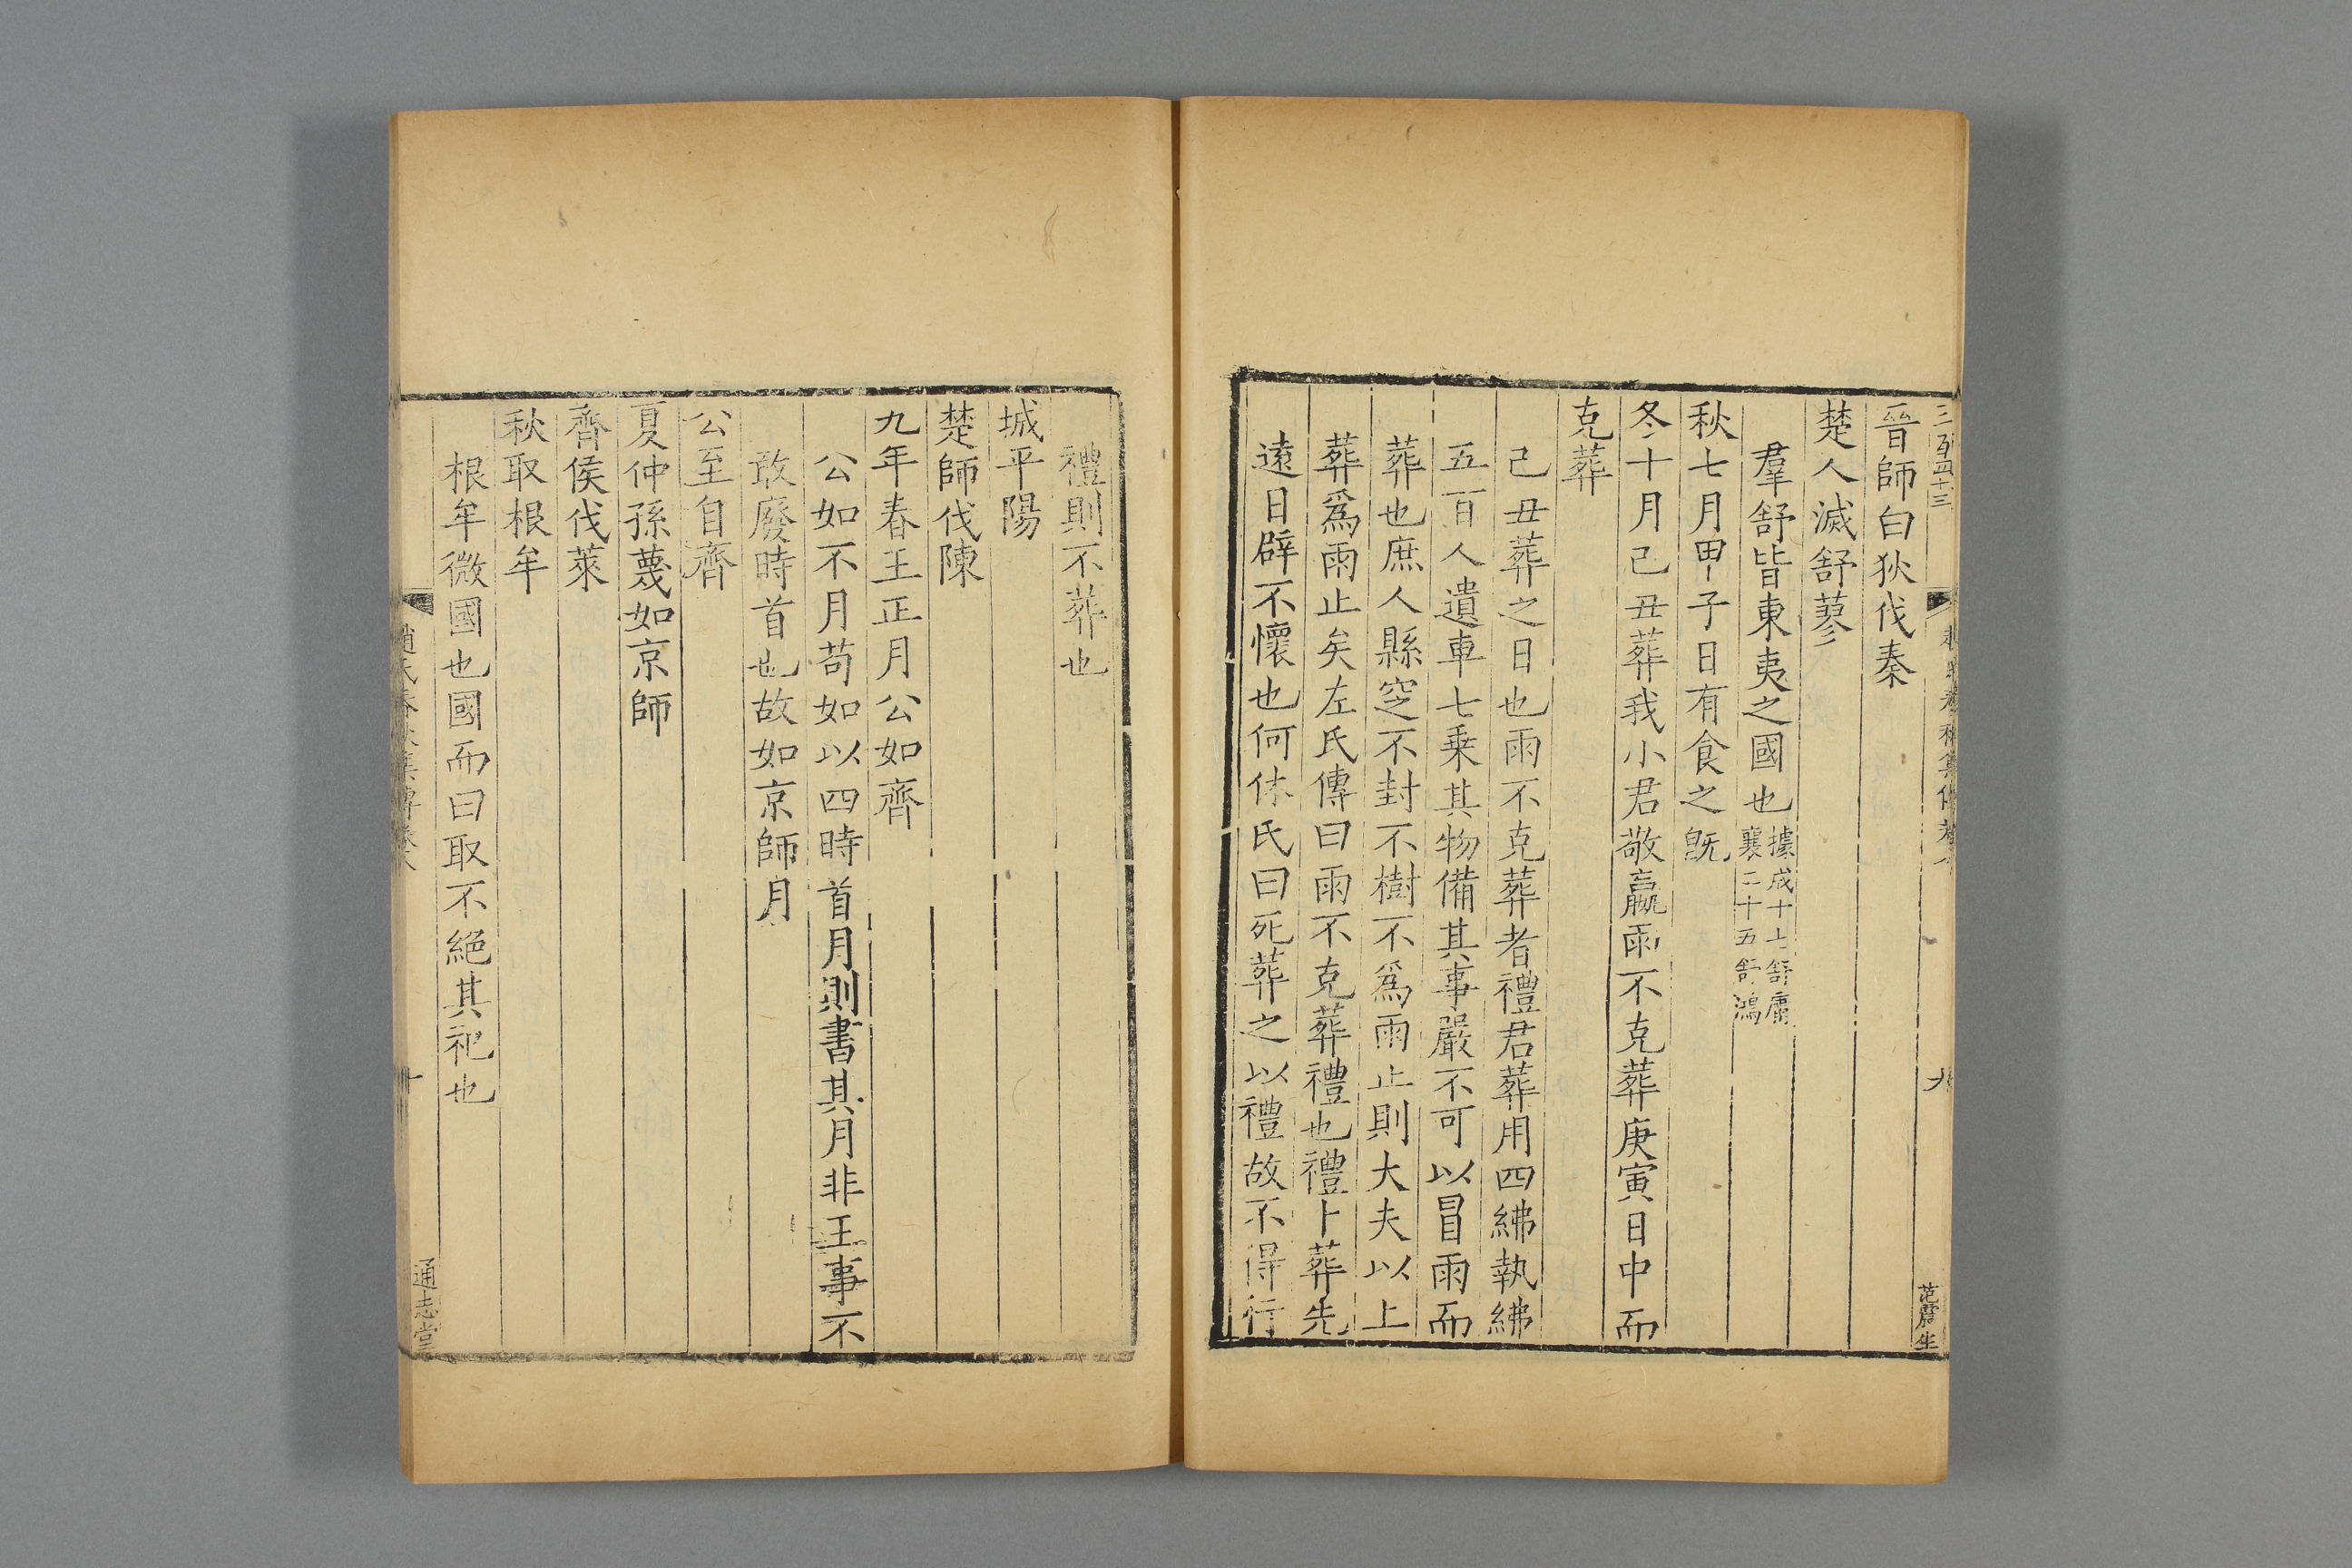 三百四十三
晉師白狄伐秦
楚人滅舒蓼
羣舒皆東夷之國也據成十七舒庸
襄二十五舒鴻
秋七月甲子日有食之旣
冬十月己丑葬我小君敬嬴雨不克葬庚寅日中而
克葬
己丑葬之日也雨不克葬者禮君葬用四綍執綍
五百人遺車七乗其物備其事嚴不可以冒雨而
葬也庶人縣窆不封不樹不爲雨止則大夫以上
葬爲雨止矣左氏傳曰雨不克葬禮也禮卜葬先
遠日辟不懷也何休氏曰死葬之以禮故不得行
九
范震生
禮則不葬也
城平陽
楚師伐陳
九年春王正月公如齊
公如不月苟如以四時首月則書其月非王事不
敢廢時首也故如京師月
公至自齊
夏仲孫蔑如京師
齊侯伐萊
秋取根牟
根牟微國也國而曰取不絕其祀也
趙氏春秋集傳卷八
十
通志堂